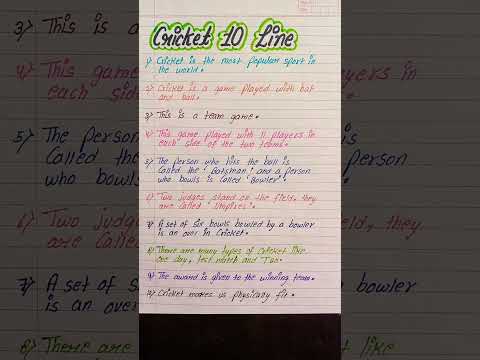 Cricket 10 Line
1) Cricket is the most popular sport in
the world.
2) Cricket is a game played with bat
and ball.
3) This is a team game.
4) This game played with 11 players in
each side of the two teams.
5) The person who hits the ball is
called the 'Batsman' and a person
who bowls is called 'Bowler'.
6) Two judges stand on the field, they
are called
7) A set of six bowls bowled by a bowler
is an over in Cricket.
8) There are many types of cricket like
one day, test match and
9) The award is given to the winning team.
10) Cricket makes us physicaly fit.
3) This is a
4) This game
each side
5) The person
called the
who bowls
6) Two judg
are called
7) A set of s
is an over
8) There are
ayers in
person
ld, they
bowler
like